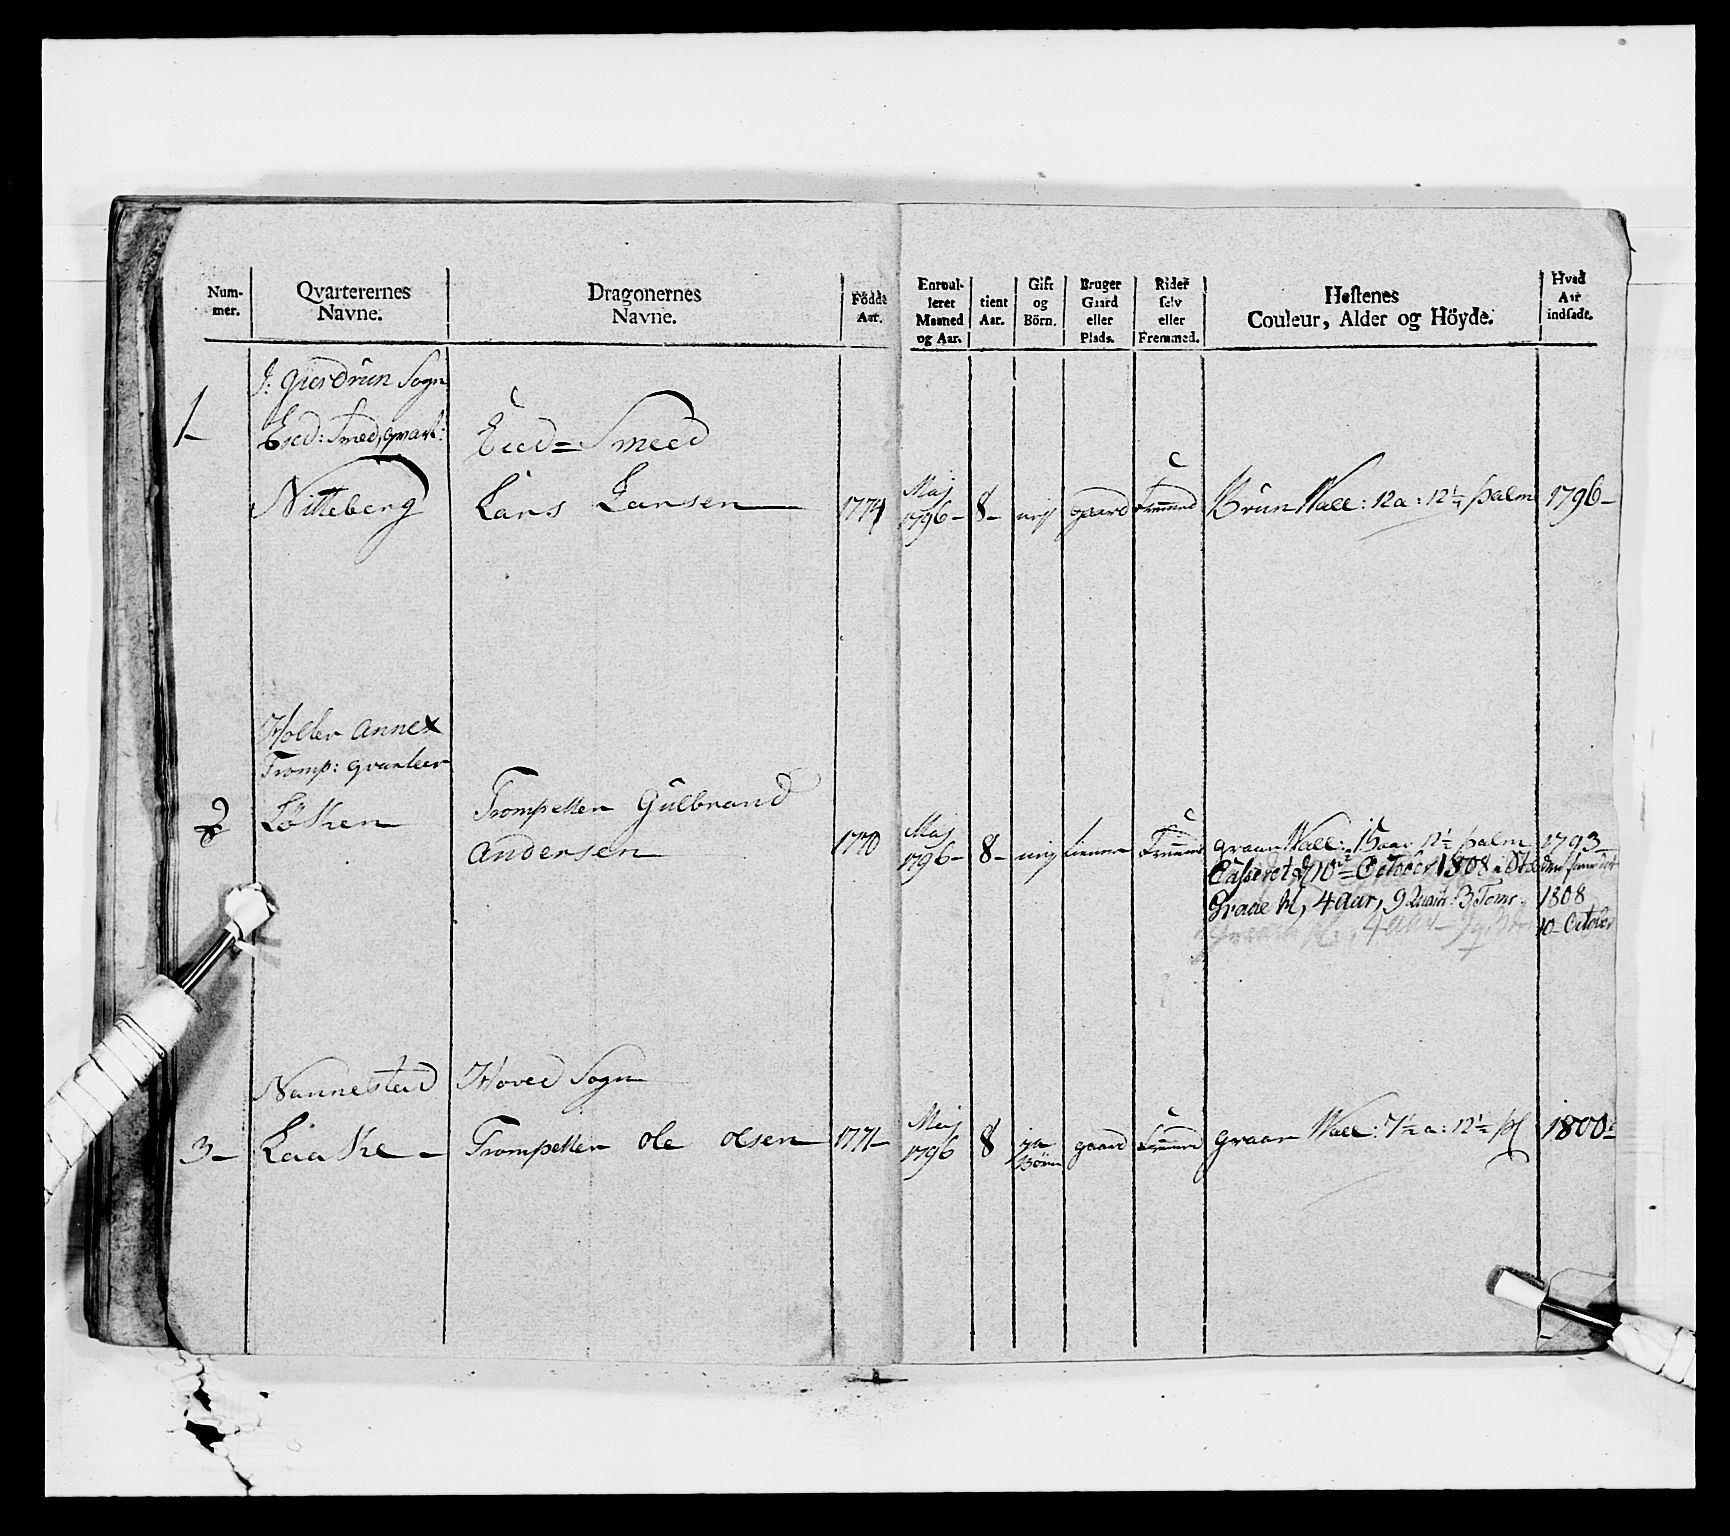 Num-
mer.
Qvarterernes
Navne.
Dragonernes
Navne.
Födde
Aar.
Enroul-
leret
Maaned
og Aar.
tient
Aar.
Gift
og
Börn.
Bruger
Gaard
eller
Plads.
Rider
selv
eller
Fremmed.
Hestenes
Couleur, Alder og Höyde.
Hvad
Aar
indsadt.
I: Gierdrun Sogn
1- Eed: Smed, qvart: Eed= Smeed
Nitteberg Lars Larsen 1774 Maj 1796- 8- nej gaard Fremmed Brun Wall: 12 a: 12½ palm 1796-
Holler Annex
Tromp: qvarteer
2 Løken Trompetter Gulbrand
Andersen 1770 Maj 1796- 8- nej tienner Fremmed graae Wall: 15 aar 12½ palm 1793
Casseret d 10de October 1808
Graae H, 4 aar, 9 Quart: 3 Tom: 1808
10 October
Nannestad Hoved Sogn
3- Laake- Trompetter Ole Olsen 1771- Maj 1796 8 Börn gaard Fremmed graae Wall: 7½ a: 12½ pl 1800